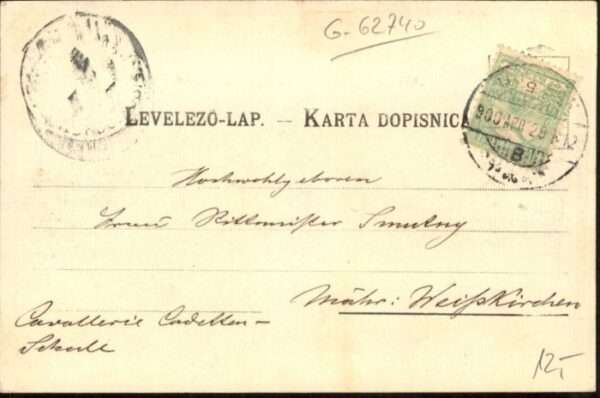 G-62740
LEVELEZŐ-LAP. – KARTA DOPISNICA
900 APR 29
B
Hochwohlgeboren
Frau Rittmeister Smutny
Mähr: Weißkirchen
Cavallerie Cadetten-
Schule
12,-